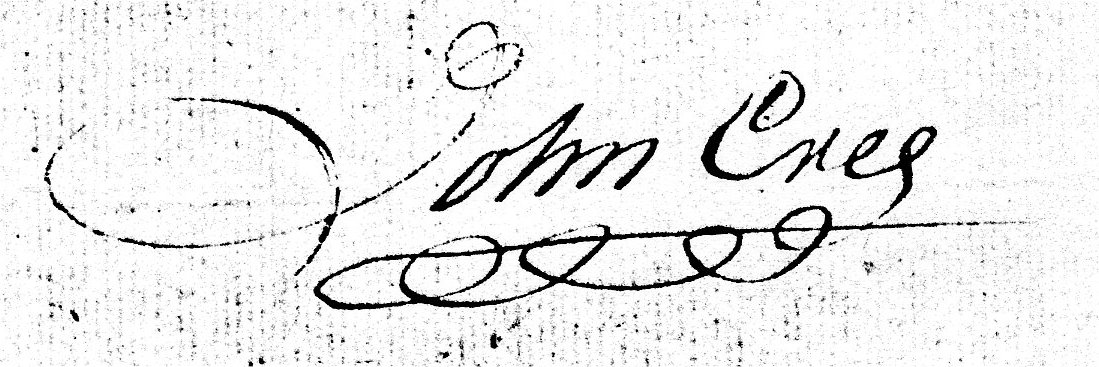 John Creg